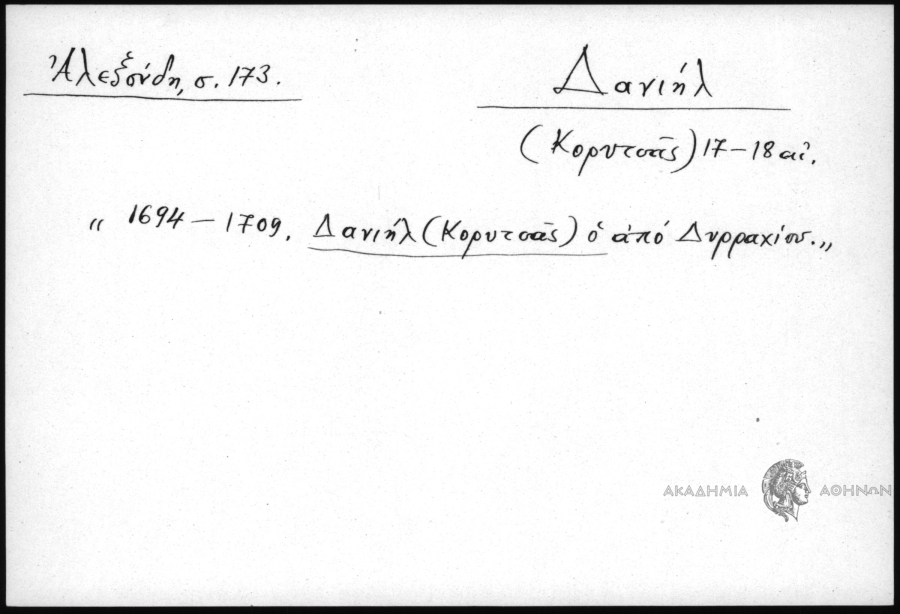 Ἀλεξούδη, σ. 173.
Δανιήλ
(Κορυτσᾶς) 17-18 αἰ.
„ 1694 - 1709. Δανιήλ (Κορυτσᾶς) ὁ ἀπό Δυρραχίου. „
ΑΚΑΔΗΜΙΑ ΑΘΗΝΩΝ